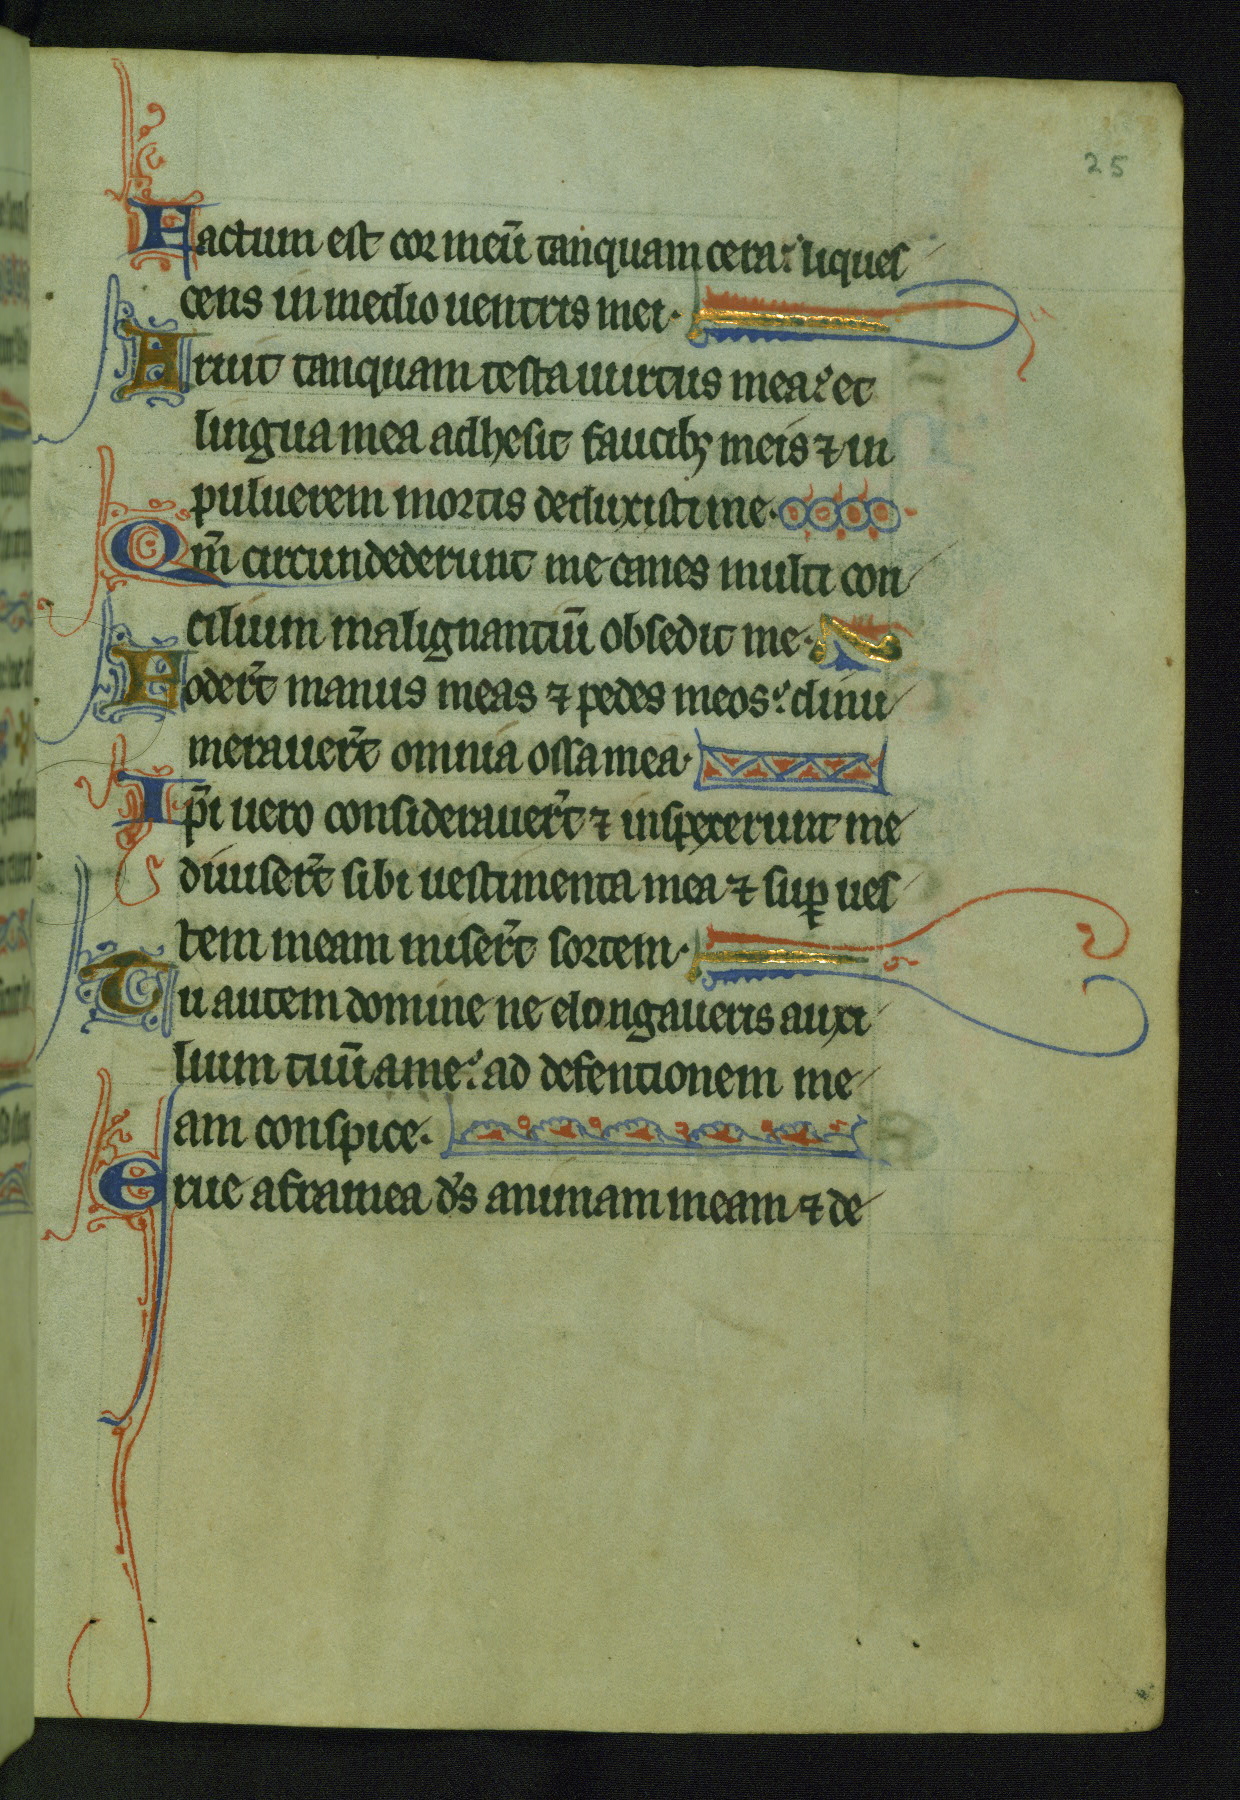 25
Factum est cor meū tanquam cera: liques
cens in medio uentris mei·
Aruit tanquam testa uirtus mea: et
lingua mea adhesit faucibꝫ meis ⁊ in
puluerem mortis deduxisti me·
Qm̄ circundederunt me canes multi con
cilium malignantiū obsedit me·
Foder̄t manus meas ⁊ pedes meos: dinu
merauer̄t omnia ossa mea·
Ip̄i uero considerauer̄t ⁊ inspexerunt me
diuiser̄t sibi uestimenta mea ⁊ suꝑ ues
tem meam miser̄t sortem·
Tu autem domine ne elongaueris auxi
lium tuū a me: ad defentionem me
am conspice·
Erue a framea d̄s animam meam ⁊ de